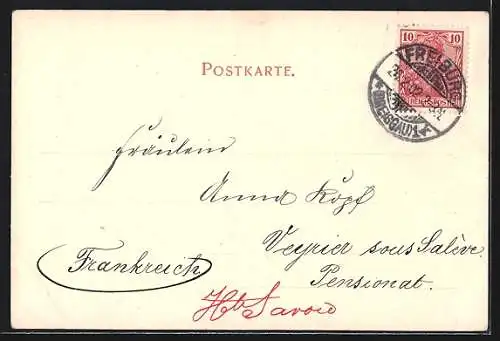 10
FREIBURG
(BREISGAU) 1
POSTKARTE.
Fräulein
Anna Kopf
Veyrier sous Salève.
Frankreich
Pensionat.
Hte Savoie